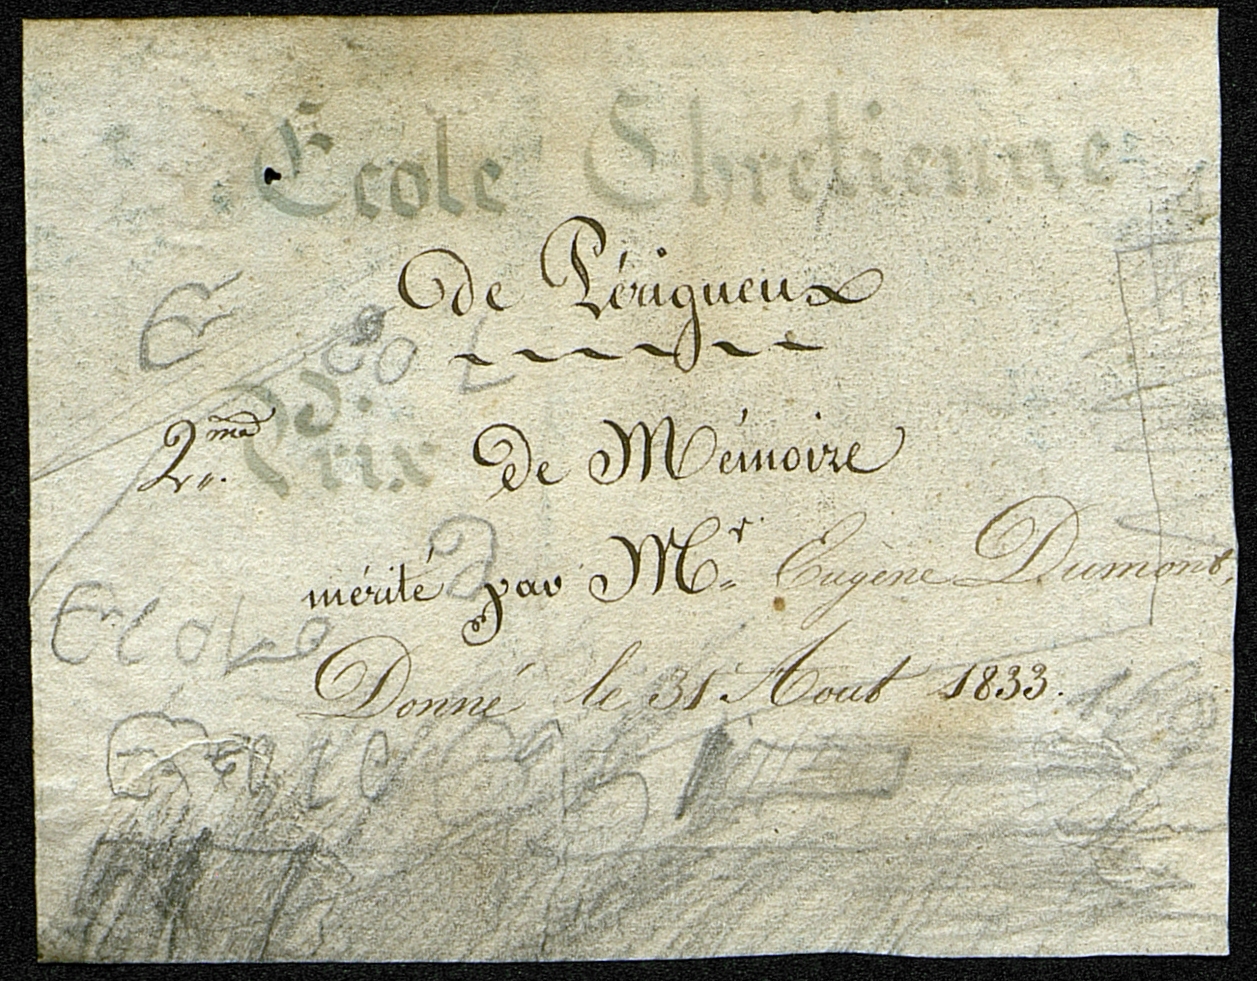 École Chrétienne
de Périgueux
2.me Prix de Mémoire
mérité par Mr. Eugène Dumont,
Donné le 31 Aout 1833.
Ecole